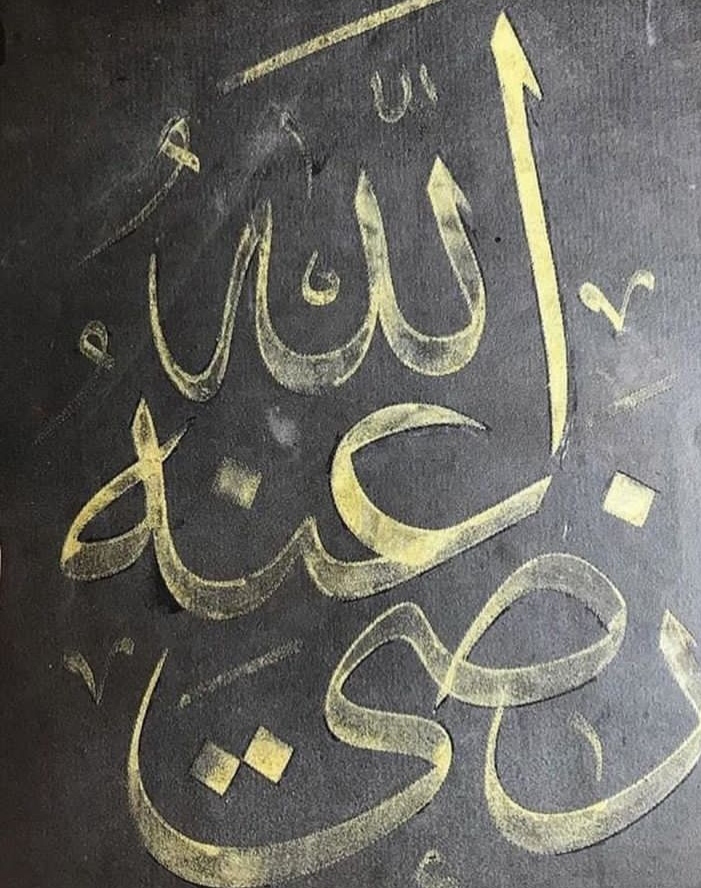 رضي
الله
عنه